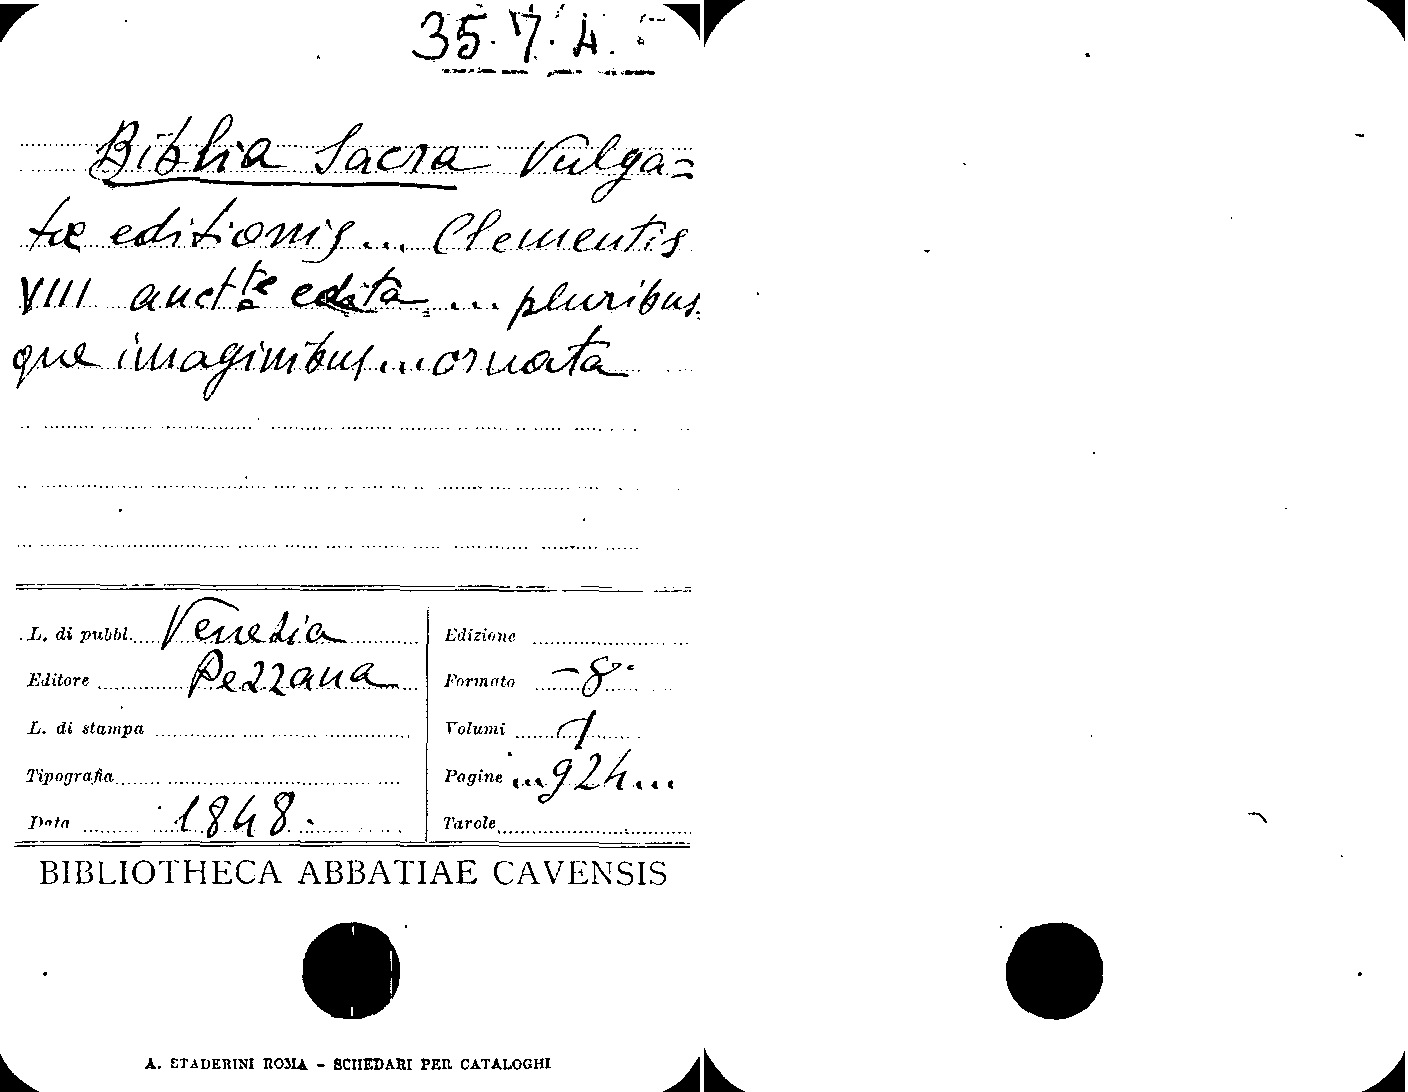 35.7.4.
Biblia Sacra Vulga=
tæ editionis... Clementis
VIII auct.te edita ... pluribus
que imaginibus... ornata
L. di pubbl. Venezia
Editore Pezzana
L. di stampa
Tipografia
Data 1848.
Edizione
Formato -8°
Volumi 1
Pagine ...924...
Tavole
BIBLIOTHECA ABBATIAE CAVENSIS
A. STADERINI ROMA - SCHEDARI PER CATALOGHI